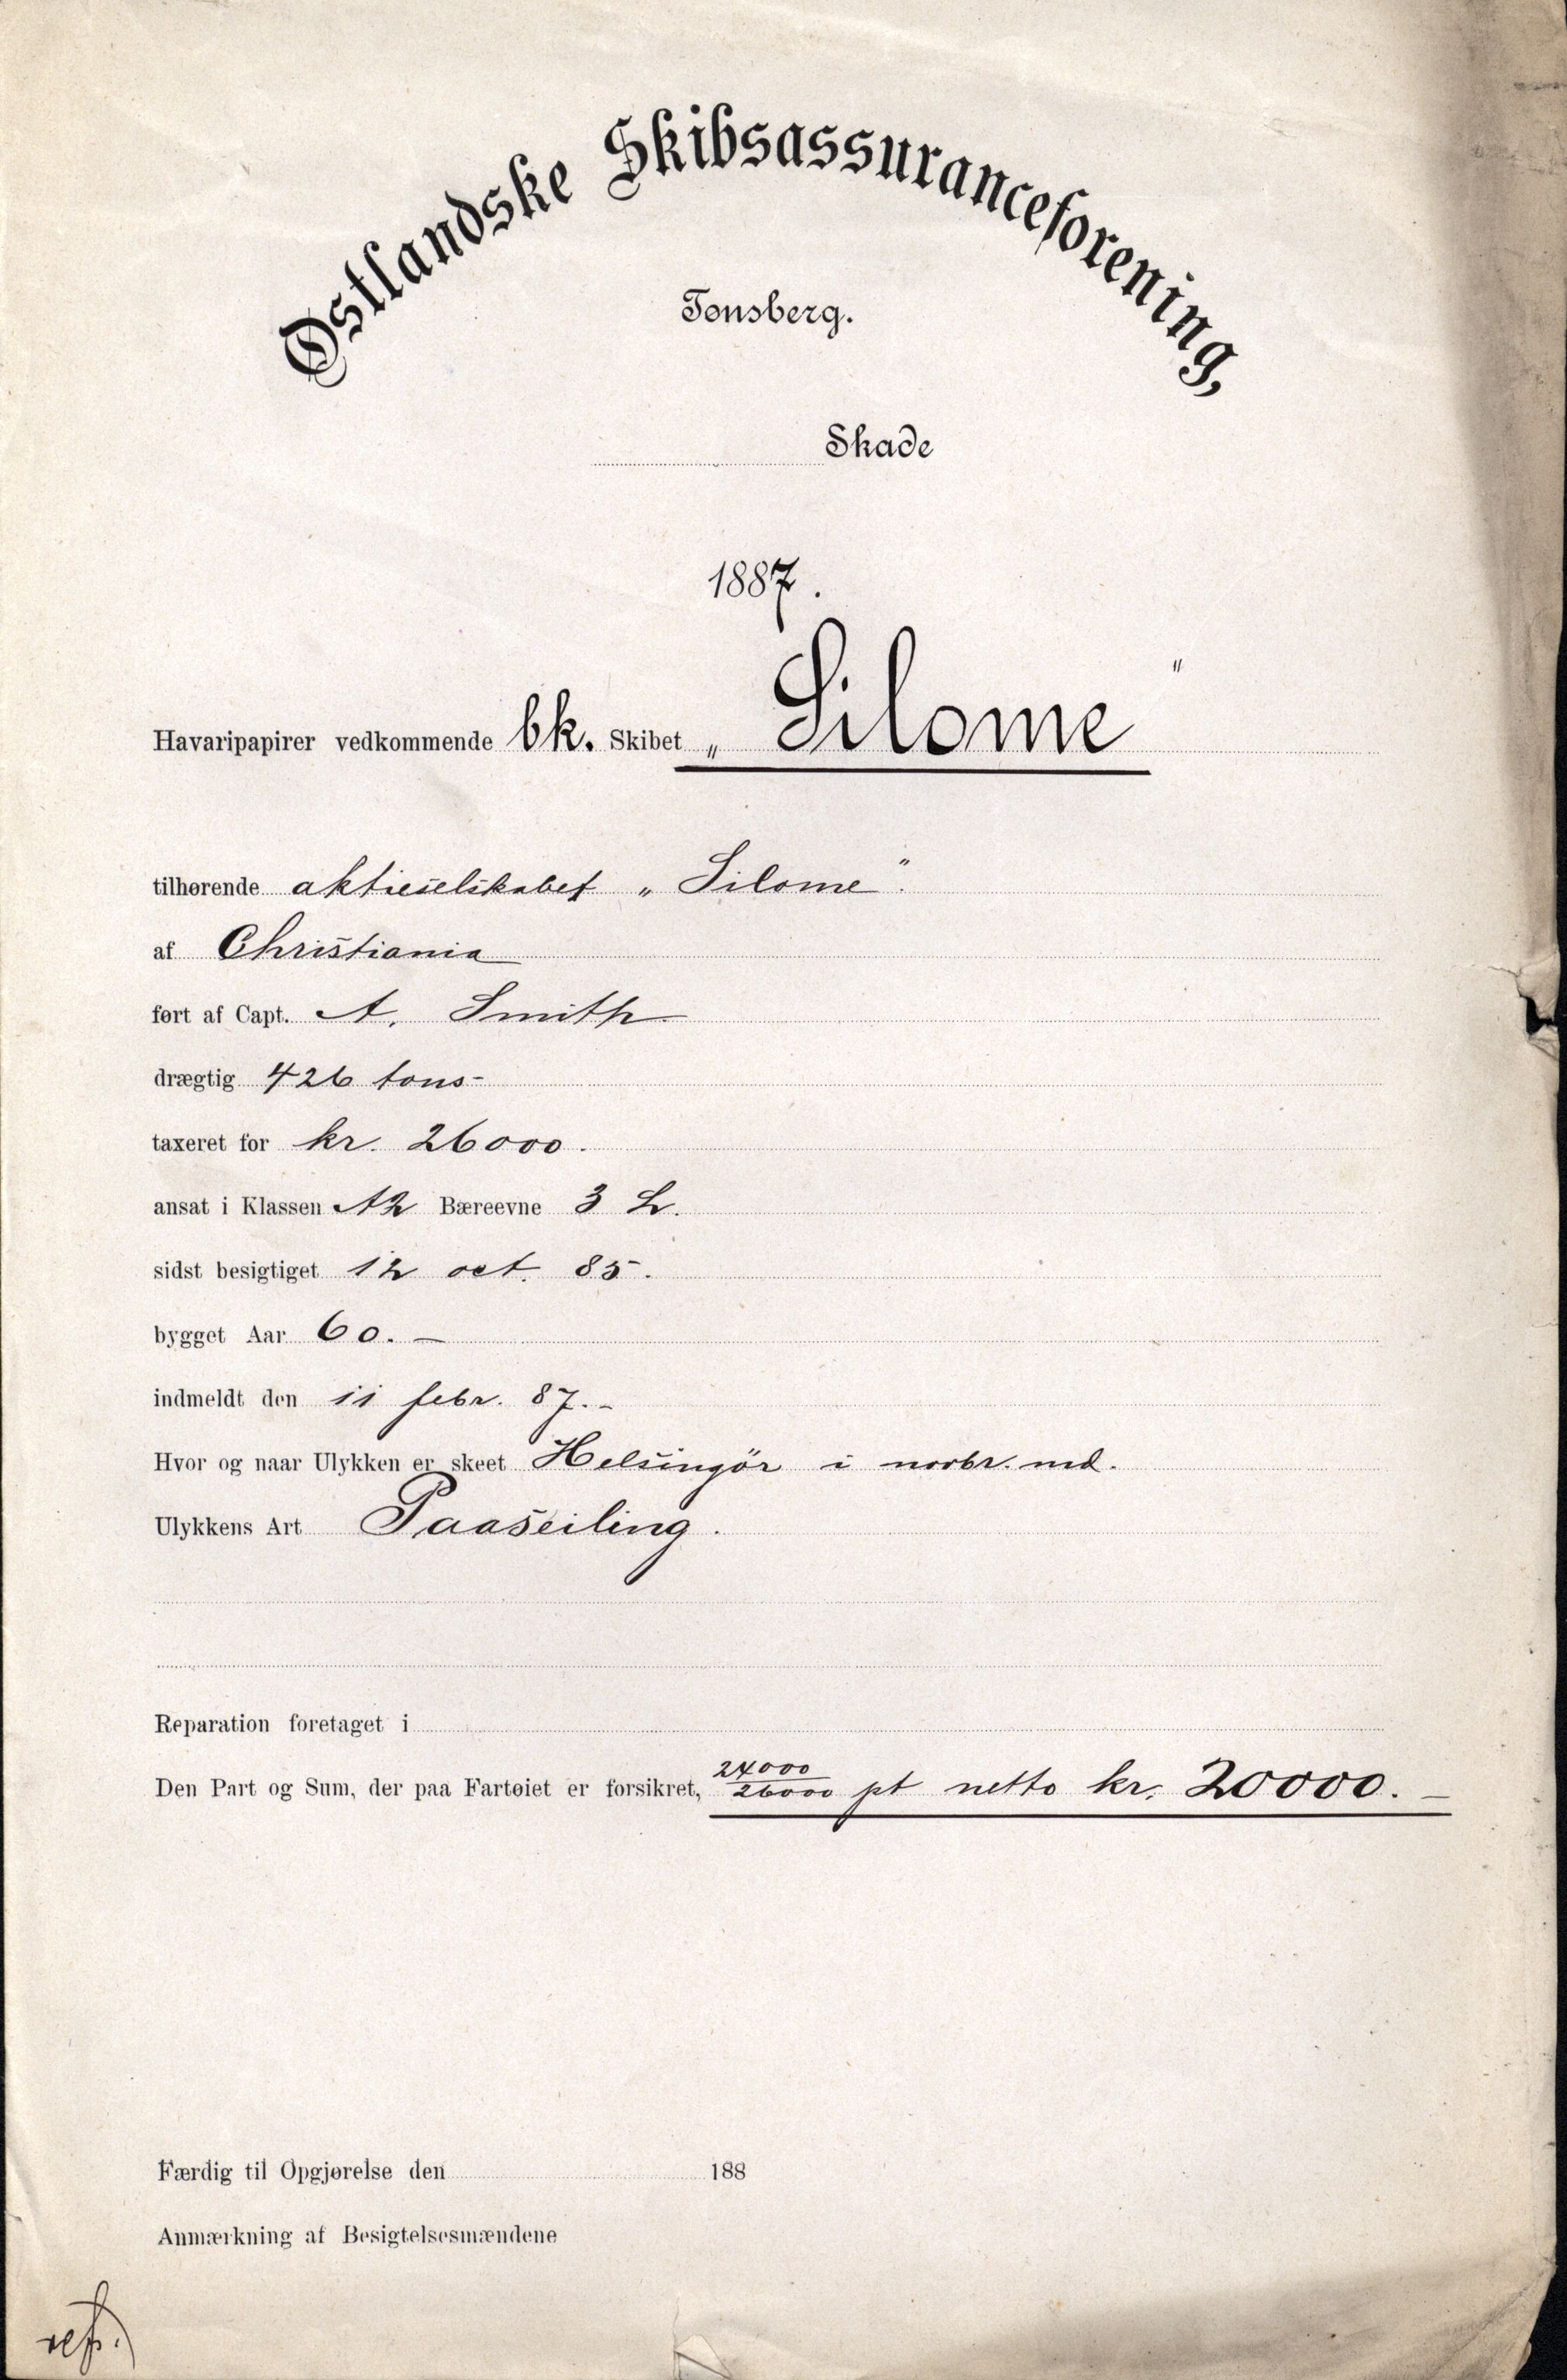 Østlandske Skibsassuranceforening,
Tønsberg.
Skade
1887.
Havaripapirer vedkommende bk. Skibet „ Silome "
tilhørende aktieselskabet „ Silome ".
af Christiania
ført af Capt. A. Smith
drægtig 426 tons-
taxeret for kr. 26000.
ansat i Klassen A2 Bæreevne 3 L.
sidst besigtiget 12 oct. 85.
bygget Aar 60. —
indmeldt den 11 febr. 87. -
Hvor og naar Ulykken er skeet Helsingör i novbr. md.
Ulykkens Art Paaseiling.
Reparation foretaget i
Den Part og Sum, der paa Fartøiet er forsikret, 24000/26000 pt netto kr. 20000. —
Færdig til Opgjørelse den 188
Anmærkning af Besigtelsesmændene